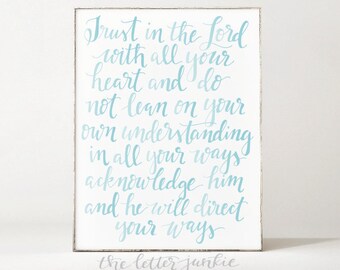 Trust in the Lord
with all your
heart and do
not lean on your
own understanding
in all your ways
acknowledge him
and he will direct
your ways
the letter junkie